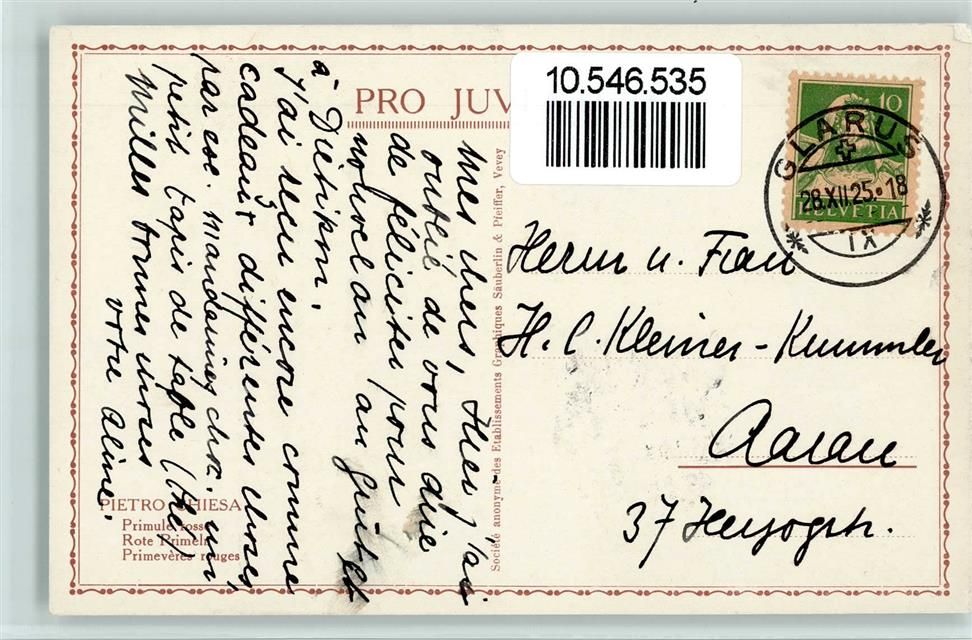 PRO JUV
10.546.535
10
HELVETIA
GLARUS
28.XII.25.18
IX
mes chers, Hier j'ai
oublié de vous dire
de féliciter pour
nohvel an au Grütli et
à Dietikon.
J'ai reçu encore comme
cadeaux différentes choses
par ex. mandarines, choc. un
petit tapis de table (thé)
Milles bonnes choses
votre Aline.
PIETRO CHIESA
Primule rosse
Rote Primeln
Primevères rouges
Société anonyme des Etablissements Graphiques Säuberlin & Pfeiffer, Vevey
Herrn u. Frau
H. C. Kleiner-Kummler
Aarau
37 Herzogstr.